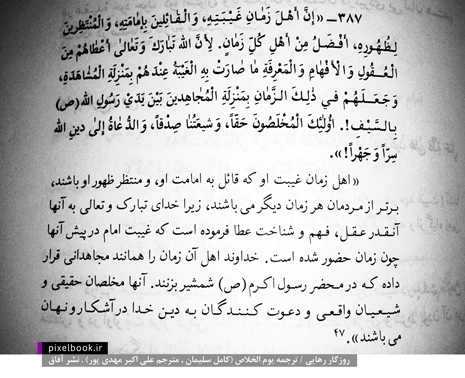 ۳۸۷ــ «إنَّ أهْلَ زَمانِ غَيْبَتِهِ، وَالْقائِلينَ بِإمامَتِهِ، وَالْمُنْتَظِرينَ
لِظُهُورِهِ، أفْضَلُ مِنْ أهْلِ كُلِّ زَمانٍ. لِأنَّ اللهَ تَبارَكَ وَتَعالىٰ أعْطاهُمْ مِنَ
الْعُقُولِ وَالْأفْهامِ وَالْمَعْرِفَةِ ما صارَتْ بِهِ الْغَيْبَةُ عِنْدَهُمْ بِمَنْزِلَةِ الْمُشاهَدَةِ،
وَجَعَلَهُمْ في ذٰلِكَ الزَّمانِ بِمَنْزِلَةِ الْمُجاهِدينَ بَيْنَ يَدَيْ رَسُولِ اللهِ(ص)
بِالسَّيْفِ!. اُولٰئِكَ الْمُخْلَصُونَ حَقّاً، وَشيعَتُنا صِدْقاً، وَالدُّعاةُ إلىٰ دينِ اللهِ
سِرّاً وَجَهْراً!».
«اهل زمان غیبت او که قائل به امامت او، و منتظر ظهور او باشند،
برتر از مردمان هر زمان دیگر می باشند، زیرا خدای تبارک و تعالی به آنها
آنقدر عقل، فهم و شناخت عطا فرموده است که غیبت امام در پیش آنها
چون زمان حضور شده است. خداوند اهل آن زمان را همانند مجاهدانی قرار
داده که در محضر رسول اکرم(ص) شمشیر بزنند. آنها مخلصان حقیقی و
شیعیان واقعی و دعوت کنندگان به دین خدا در آشکار و نهان
می باشند».۴۷
pixelbook.ir
روزگار رهایی / ترجمه یوم الخلاص (کامل سلیمان . مترجم علی اکبر مهدی پور) . نشر آفاق